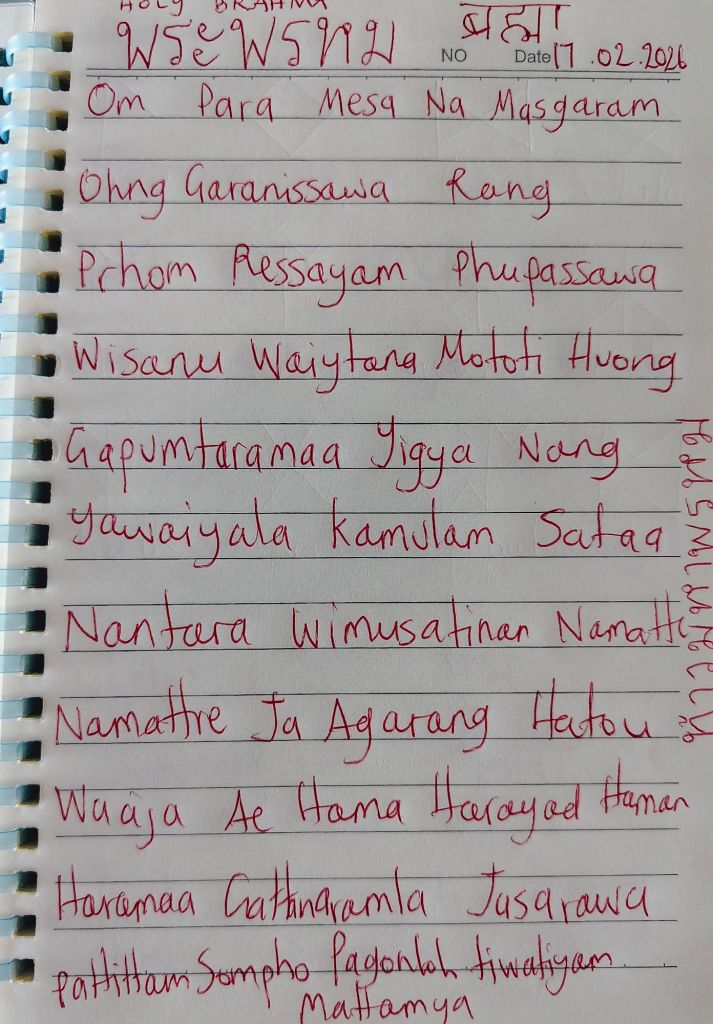 HOLY BRAHMA
พระพรหม
ब्रह्मा
NO Date 17.02.2026
Om Para Mesa Na Masgaram
Ohng Garanissawa Rang
Prhom Ressayam Phupassawa
Wisanu Waiytana Mototi Huong
Gapumtaramaa Yigya Nang
Yawaiyala Kamulam Sataa
Nantara Wimusatinan Namatte
Namattre Ja Agarang Hatou
Waaja Ae Hama Harayad Haman
Haramaa Gattinaramla Jusarawa
Pattittam Sompho Pagonloh tiwatiyam
Mattamya